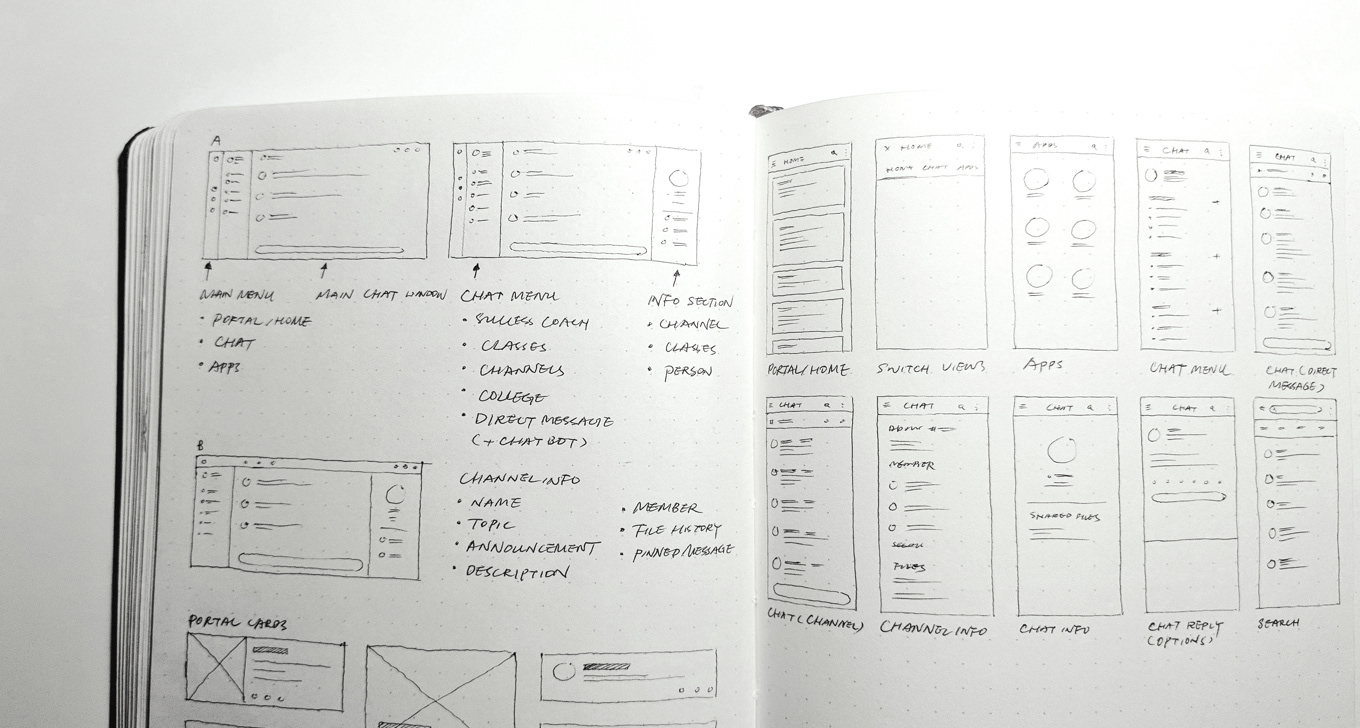 A
MAIN MENU
• PORTAL/HOME
• CHAT
• APPS
MAIN CHAT WINDOW
CHAT MENU
• SUCCESS COACH
• CLASSES
• CHANNELS
COLLEGE
• DIRECT MESSAGE
(+ CHAT BOT)
INFO SECTION
• CHANNEL
• CLASSES
• PERSON
B
CHANNEL INFO
• NAME
• TOPIC
• ANNOUNCEMENT
• DESCRIPTION
• MEMBER
• FILE HISTORY
• PINNED MESSAGE
PORTAL CARDS
HOME
PORTAL/HOME
X HOME
HOME CHAT APPS
SWITCH VIEWS
APPS
APPS
CHAT
CHAT MENU
CHAT
CHAT (DIRECT
MESSAGE)
CHAT
CHAT (CHANNEL)
CHAT
ABOUT
MEMBER
FILES
CHANNEL INFO
CHAT
SHARED FILES
CHAT INFO
CHAT
CHAT REPLY
(OPTIONS)
SEARCH